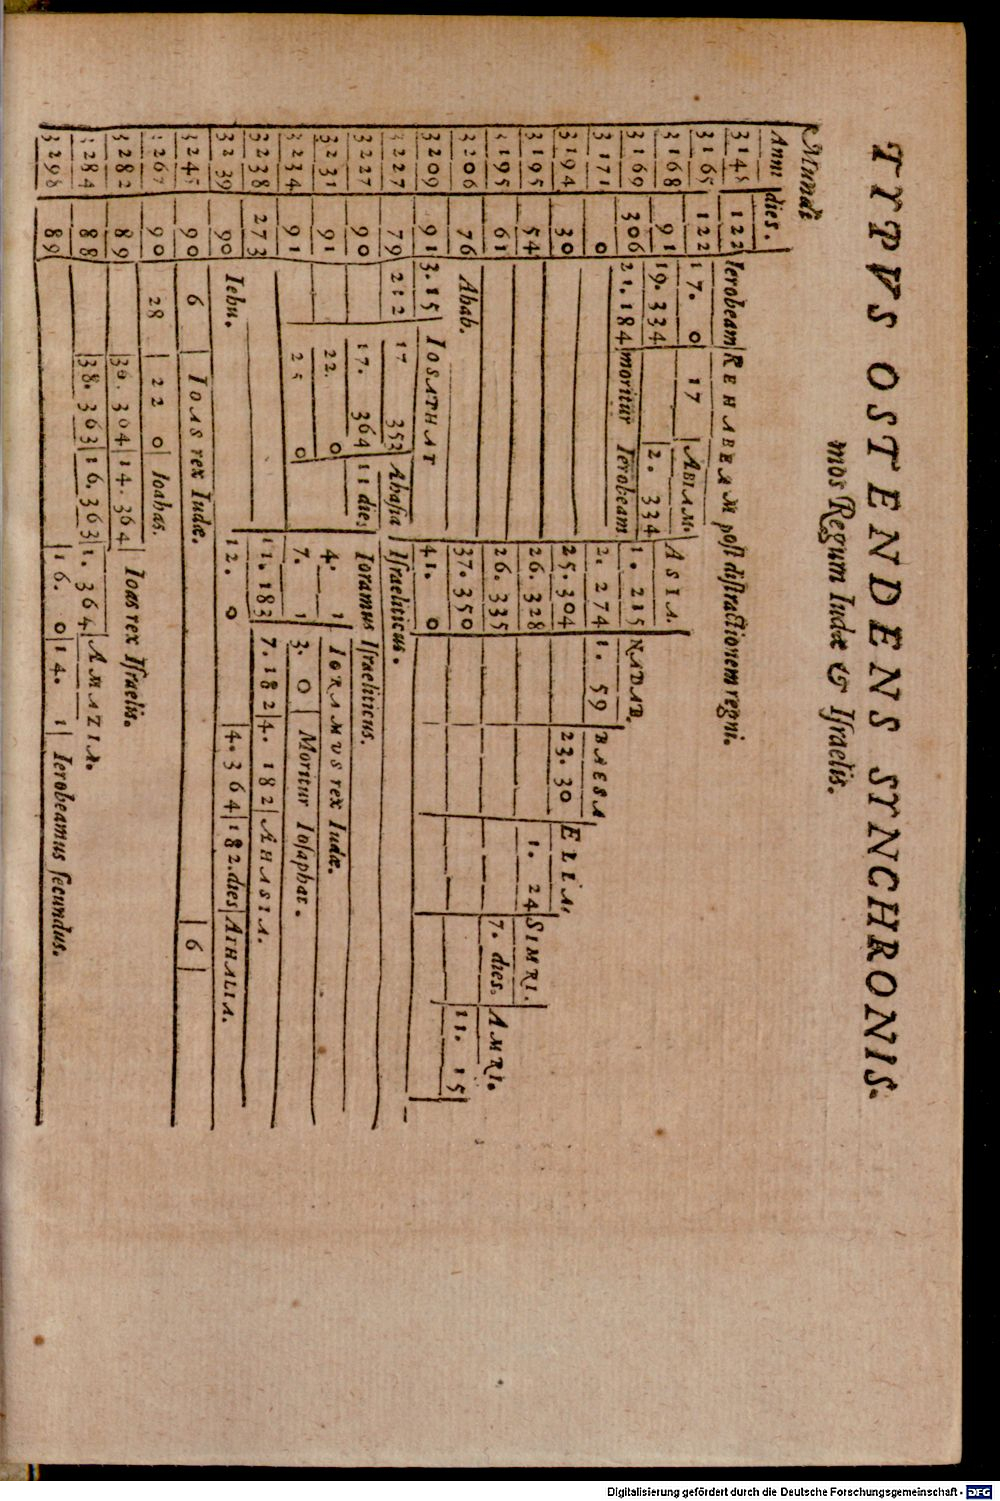 TYPVS OSTENDENS SYNCHRONIS-
mos Regum Iudæ & Israelis.
Mundi
Anni dies.
3145 122 Ierobeam REHABEAM post distractionem regni.
3165 122 17. 0 17 ABIAM.
3168 91 19. 334 2. 334 ASIA.
3169 306 21. 184 moritur Ierobeam 1. 215 NADAB.
3171 0 2. 274 1. 59 BAESA
3194 30 25. 304 23. 30 ELLA.
3195 54 26. 328 1. 24 SIMRI.
3195 61 26. 335 7. dies. AMRI.
3206 76 Ahab. 37. 350 11. 15
3209 91 3. 15 IOSATHAT 41. 0
3227 79 212 17 353 Ahasia Israeliticus.
3227 90 17. 364 11 dies Ioramus Israeliticus.
3231 91 22. 0 4. 1 IORAMVS rex Iudæ.
3234 91 25 0 7. 1 3. 0 Moritur Iosaphat.
3238 273 11. 183 7. 182 4. 182 AHASIA.
3239 90 Iehu. 12. 0 4. 364 182. dies ATHALIA.
3245 90 6 IOAS rex Iudæ. 6
3267 90 28 22 0 Ioahas.
3282 89 36. 304 14. 364 Ioas rex Israelis.
3284 88 38. 363 16. 363 1. 364 AMAZIA.
3298 89 16. 0 14. 1 Ierobeamus secundus.
Digitalisierung gefördert durch die Deutsche Forschungsgemeinschaft - DFG